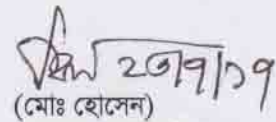 ২৩/৭/১৭
(মোঃ হোসেন)